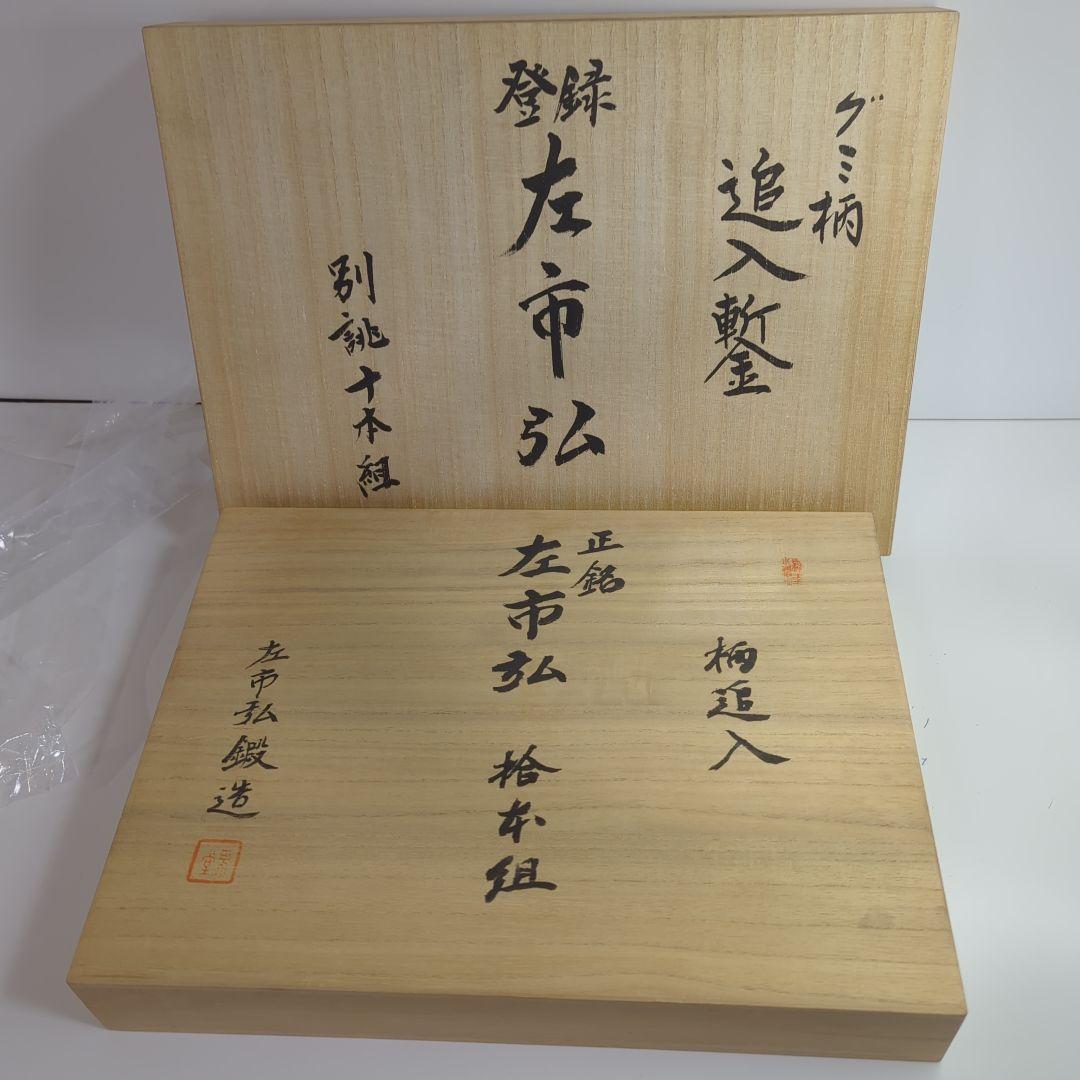 グミ柄
追入鏨
登録
左市弘
別誂十本組
柄追入
正銘
左市弘 拾本組
左市弘鍛造